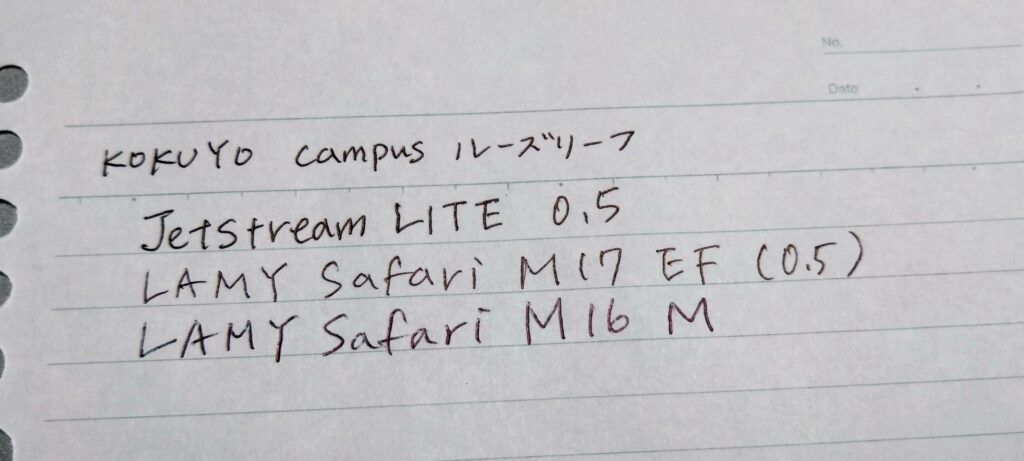 No.
Date
KOKUYO campus ルーズリーフ
Jetstream LITE 0.5
LAMY Safari M17 EF (0.5)
LAMY Safari M16 M